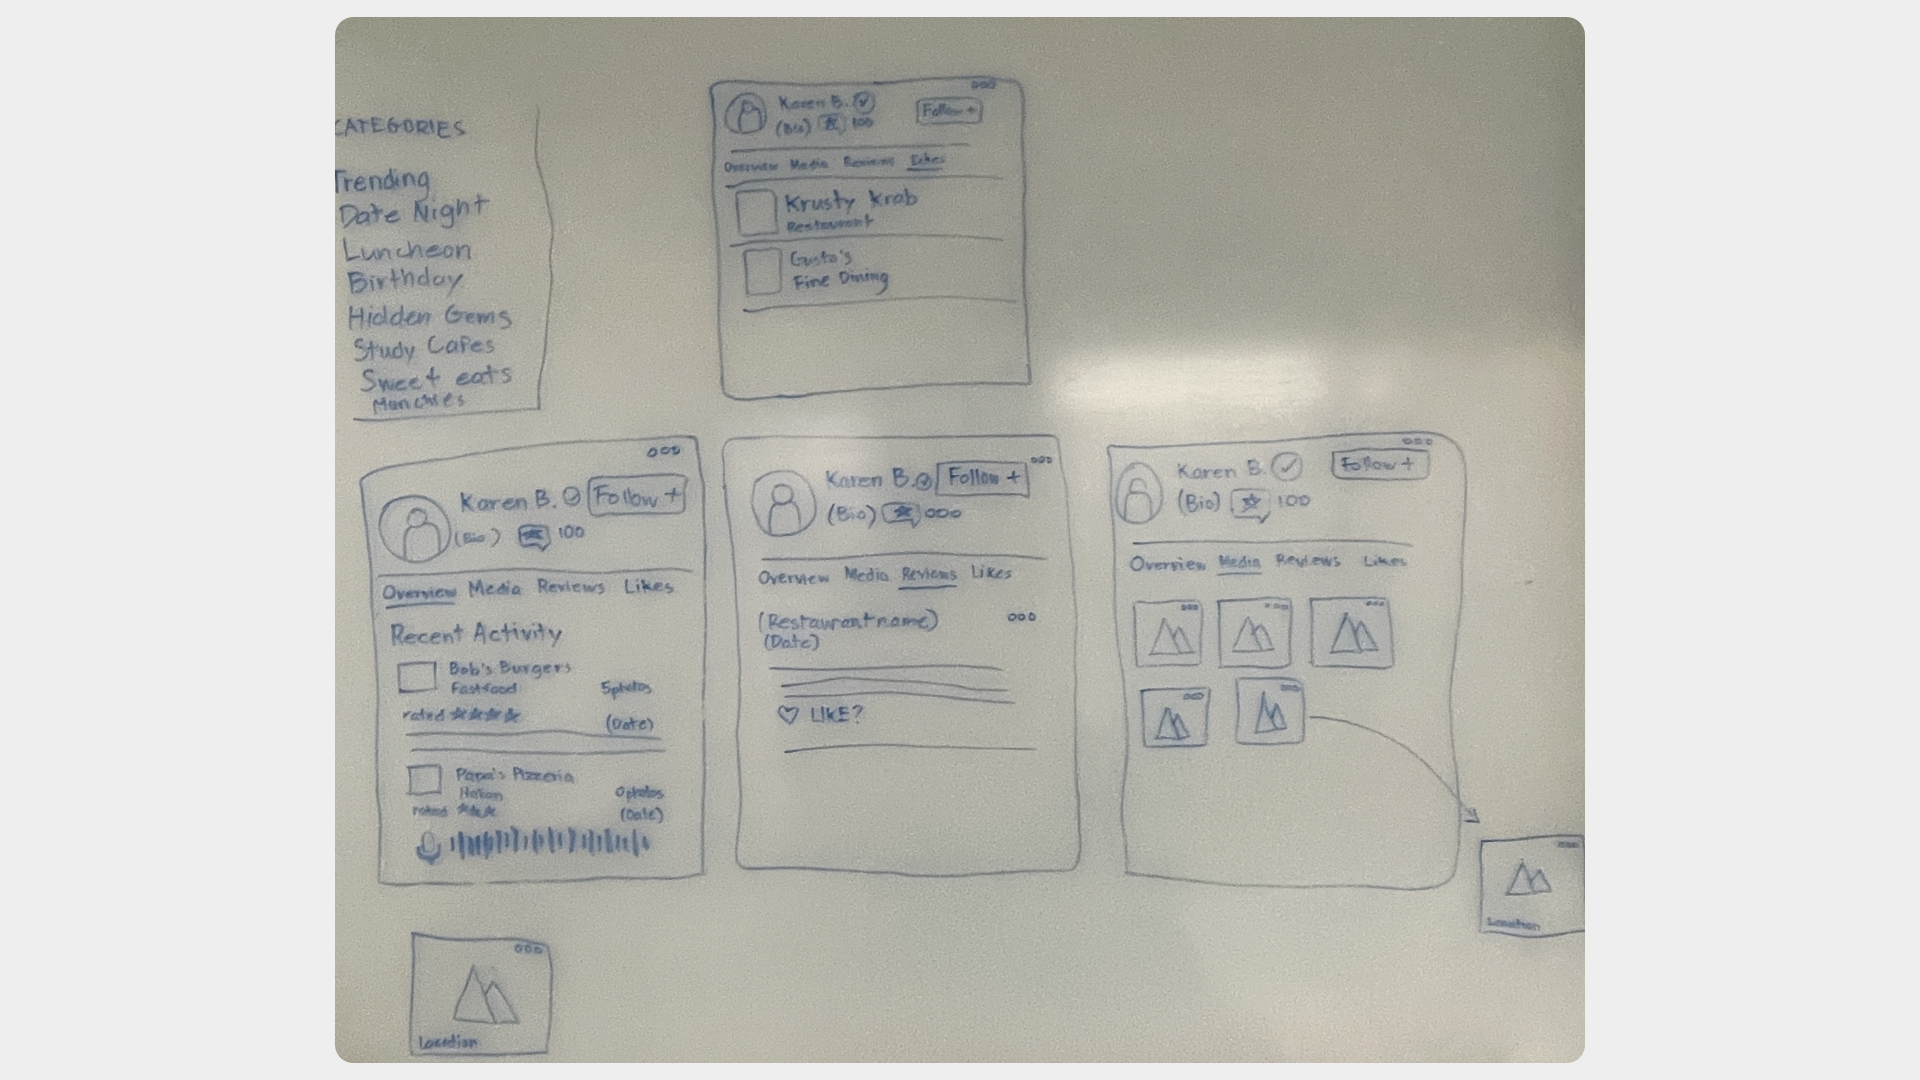 CATEGORIES
Trending
Date Night
Luncheon
Birthday
Hidden Gems
Study Cafes
Sweet eats
Munchies
Karen B.
Follow +
(Bio) 100
Overview Media Reviews Likes
Krusty Krab
Restaurant
Gusto's
Fine Dining
Karen B. Follow +
(Bio) 100
Overview Media Reviews Likes
Recent Activity
Bob's Burgers
Fastfood 5photos
rated ★★★★ (Date)
Papa's Pizzeria
Italian 0photos
rated ★★★ (Date)
Karen B. Follow +
(Bio) 000
Overview Media Reviews Likes
(Restaurant name)
(Date)
LIKE?
Karen B. Follow +
(Bio) 100
Overview Media Reviews Likes
Location
Location